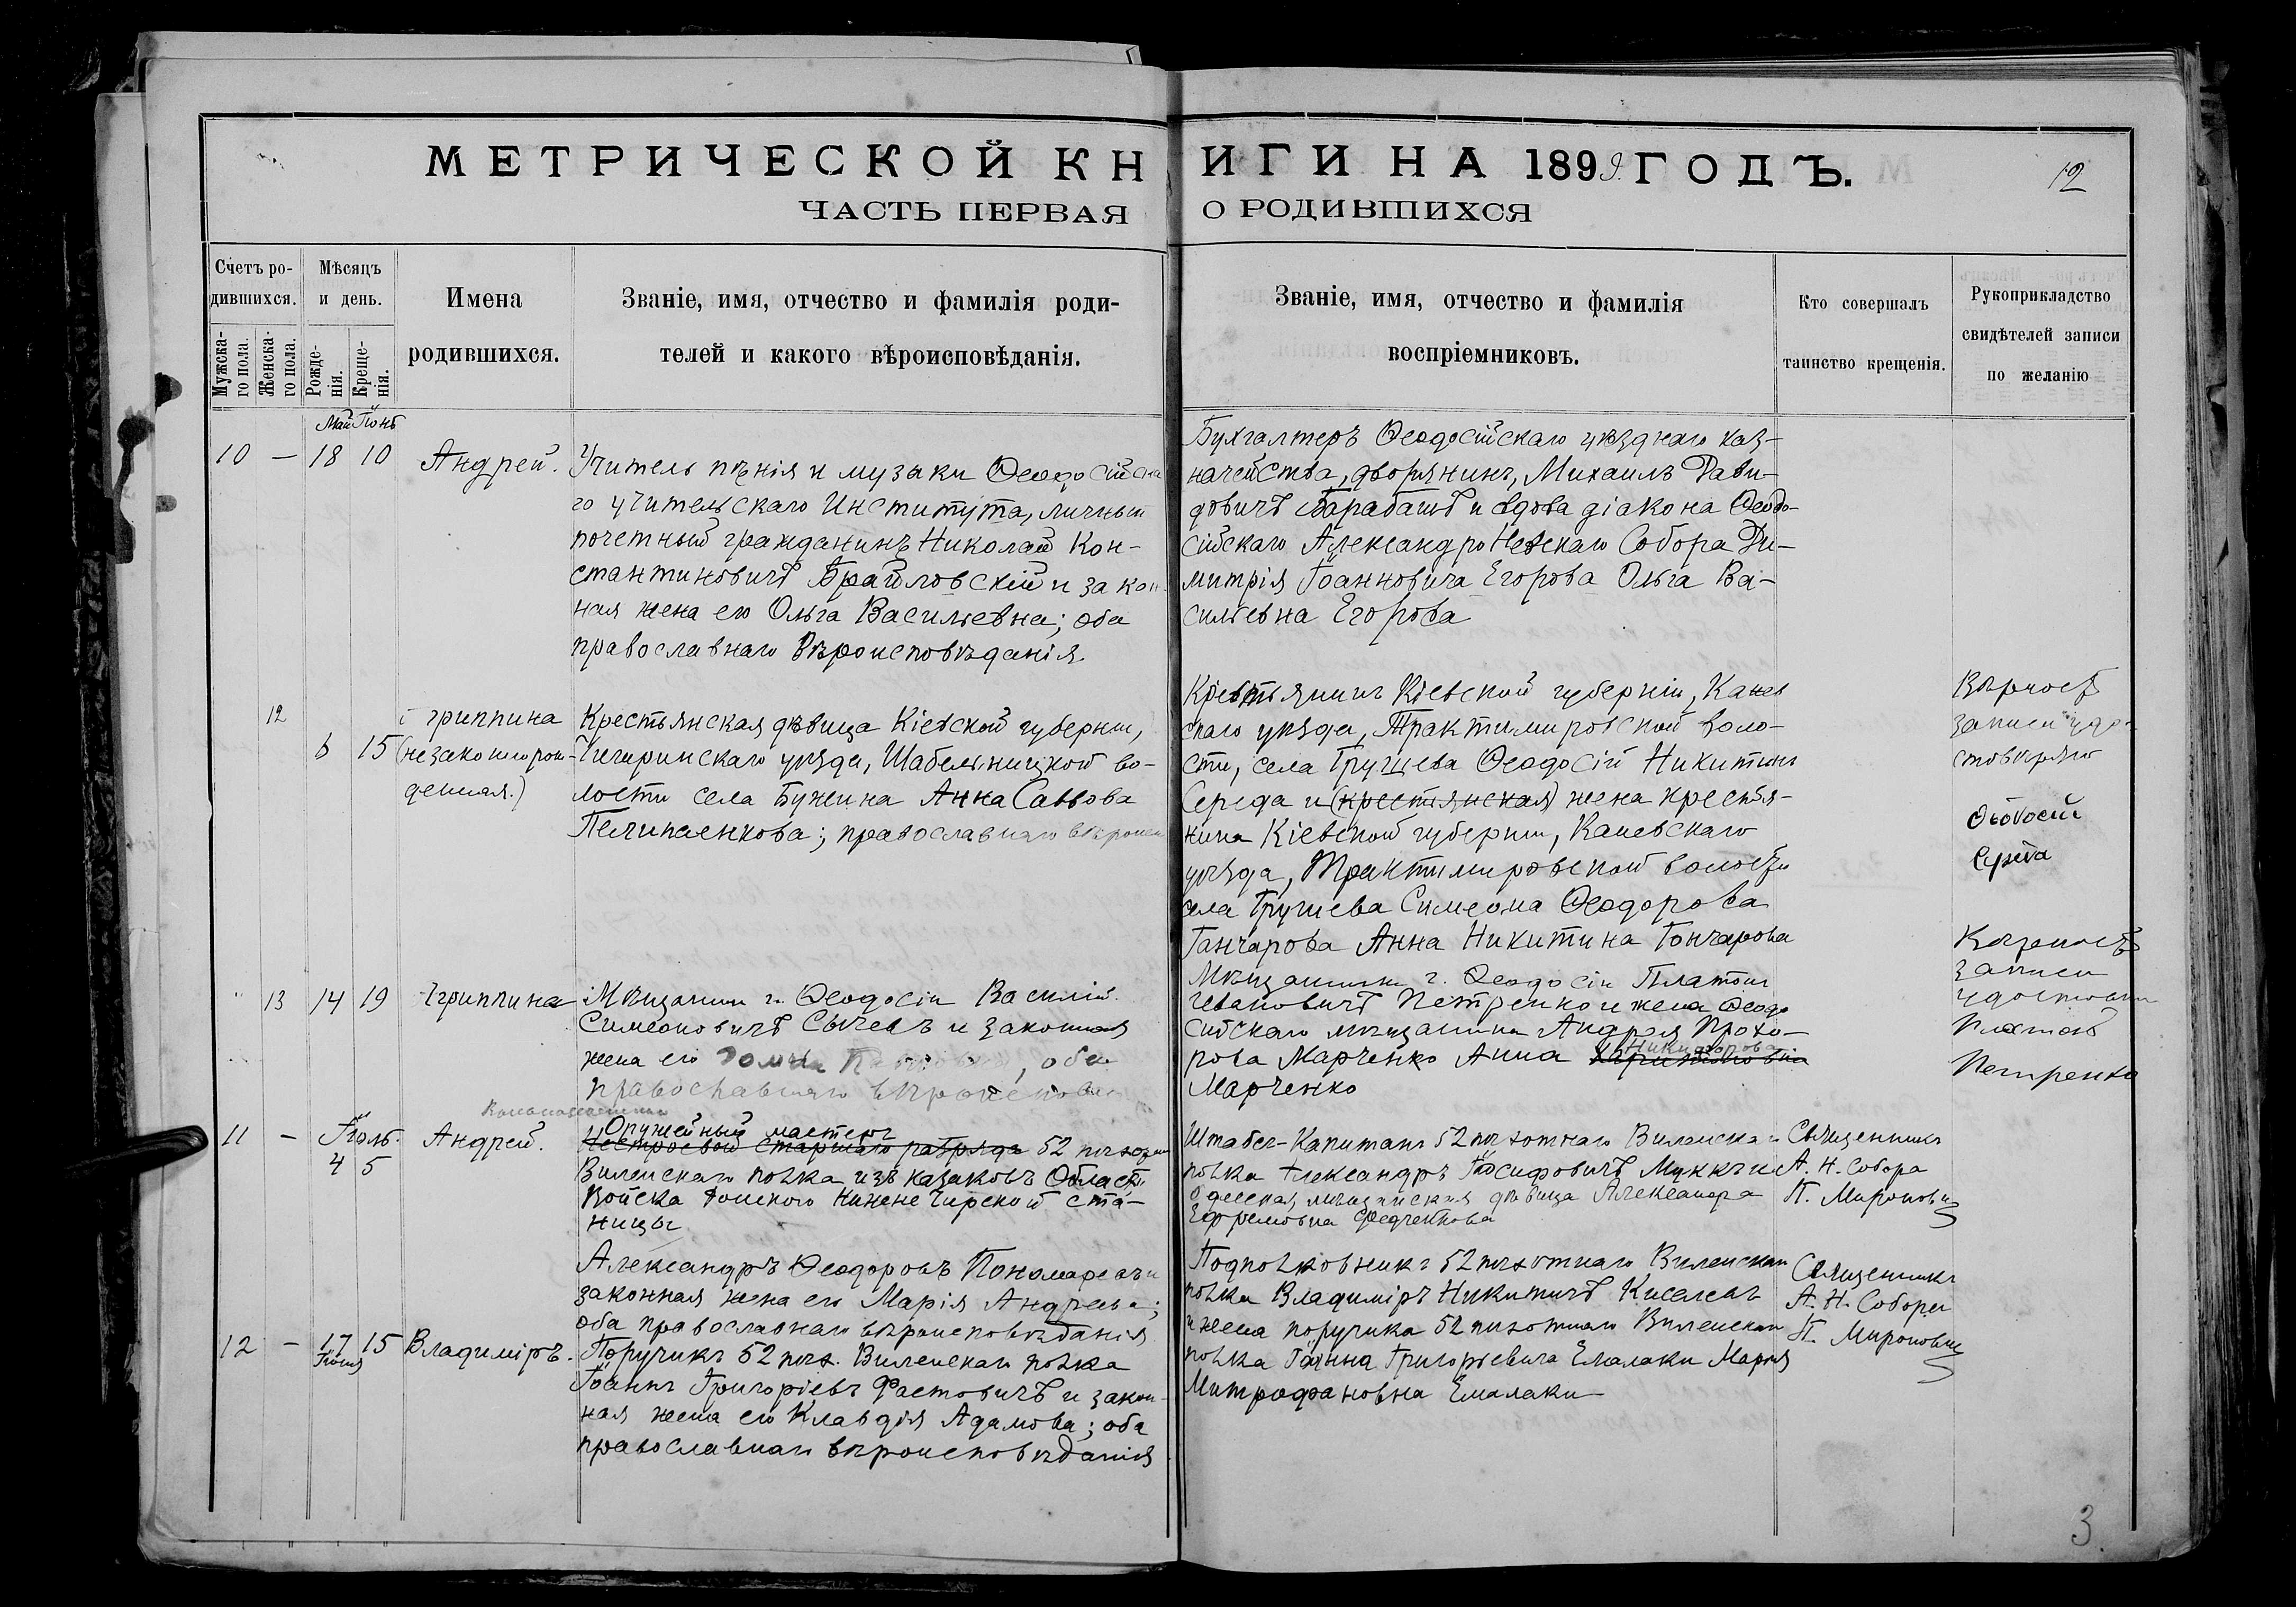 МЕТРИЧЕСКОЙ КНИГИ НА 1899 ГОДЪ.
12
ЧАСТЬ ПЕРВАЯ О РОДИВШИХСЯ
Счетъ ро-
дившихся.
Мужска-
го пола.
Женска-
го пола.
Мѣсяцъ
и день.
Рожде-
нія.
Креще-
нія.
Имена
родившихся.
Званіе, имя, отчество и фамилія роди-
телей и какого вѣроисповѣданія.
Званіе, имя, отчество и фамилія
воспріемниковъ.
Кто совершалъ
таинство крещенія.
Рукоприкладство
свидѣтелей записи
по желанію
Май Іюнь
10 — 18 10 Андрей.
Учитель пѣнія и музыки Ѳеодосійска
го учительскаго Института, личный
почетный гражданинъ Николай Кон-
стантиновичъ Брайловскій и закон-
ная жена его Ольга Васильевна; оба
православнаго вѣроисповѣданія.
Бухгалтеръ Ѳеодосійскаго уѣзднаго каз-
начейства, дворянинъ, Михаилъ Дави-
довичъ Барабашъ и вдова діакона Ѳеодо-
сійскаго Александро Невскаго Собора Ди-
митрія Іоанновича Егорова Ольга Ва-
сильевна Егорова
12 6 15
гриппина
(незаконнорож-
денная.)
Крестьянская дѣвица Кіевской губерніи,
Чигиринскаго уѣзда, Шабельницкой во-
лости села Бужина Анна Саввова
православнаго вѣроисп
Крестьянинъ Кіевской губерніи, Канев
скаго уѣзда, Трактимировской воло-
сти, села Грушева Ѳеодосій Никитинъ
Середа и (крестьянская) жена крестья-
нина Кіевской губерніи, Каневскаго
уѣзда, Трактимировской волости
села Грушева Симеона Ѳеодорова
Ганчарова Анна Никитина Гончарова
Вѣрность
записи удо-
стовѣряю
Середа
13 14 19 Агриппина
Мѣщанинъ г. Ѳеодосіи Василій
Симеоновичъ Сычевъ и законная
жена его Домна, оба
православнаго вѣроисповѣд
Мѣщанинъ г. Ѳеодосіи Платонъ
Ивановичъ Петренко и жена Ѳеодо
сійскаго мѣщанина Андрея Прохо-
Никифорова
рова Марченко Анна Харитоновна
Марченко
Вѣрность
записи
удостовѣр
Платонъ
Петренко
Іюль.
11 — 4 5 Андрей.
Оружейный мастеръ
Нестроевой старшаго разряда 52 пѣхотн
Виленскаго полка изъ казаковъ Области
Войска Донского Нижне Чирской ста-
ницы
Александръ Ѳеодоровъ Пономаревъ и
законная жена его Марія Андреева;
оба православнаго вѣроисповѣданія
Штабсъ-Капитанъ 52 пѣхотнаго Виленска
полка Александръ Іосифовичъ и
Одесская, мѣщанская дѣвица Александра
Ефремовна Федченкова
Священникъ
А. Н. Собора
П. Мироновичъ
12 — 17 15 Владиміръ.
Іюня
Поручикъ 52 пѣх. Виленскаго полка
Іоаннъ Григоріевъ Фастовичъ и закон-
ная жена его Клавдія Адамова; оба
православнаго вѣроисповѣданія
Подполковникъ 52 пѣхотнаго Виленскаго
полка Владиміръ Никитичъ Киселевъ
и жена поручика 52 пѣхотнаго Виленскаго
полка Іоанна Григорьевича Емалаки Марія
Митрофановна Емалаки
Священникъ
А. Н. Собора
П. Мироновичъ
3